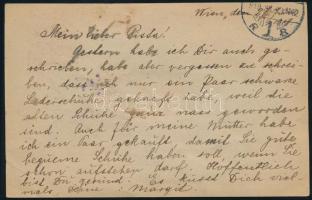 Wien, den
Mein lieber Pista.
Gestern habe ich Dir auch ge-
schrieben, habe aber vergessen zu schrei-
ben, dass ich mir ein Paar schwarze
Lederschuhe gekauft habe, weil die
alten Schuhe ganz nass geworden
sind. Auch für meine Mutter habe
ich ein Paar gekauft, damit Sie gute
bequeme Schuhe haben soll, wenn Sie
schon aufstehen darf. Hoffentlich
bist Du gesund. Es küsst Dich viel-
mals Deine: Margit